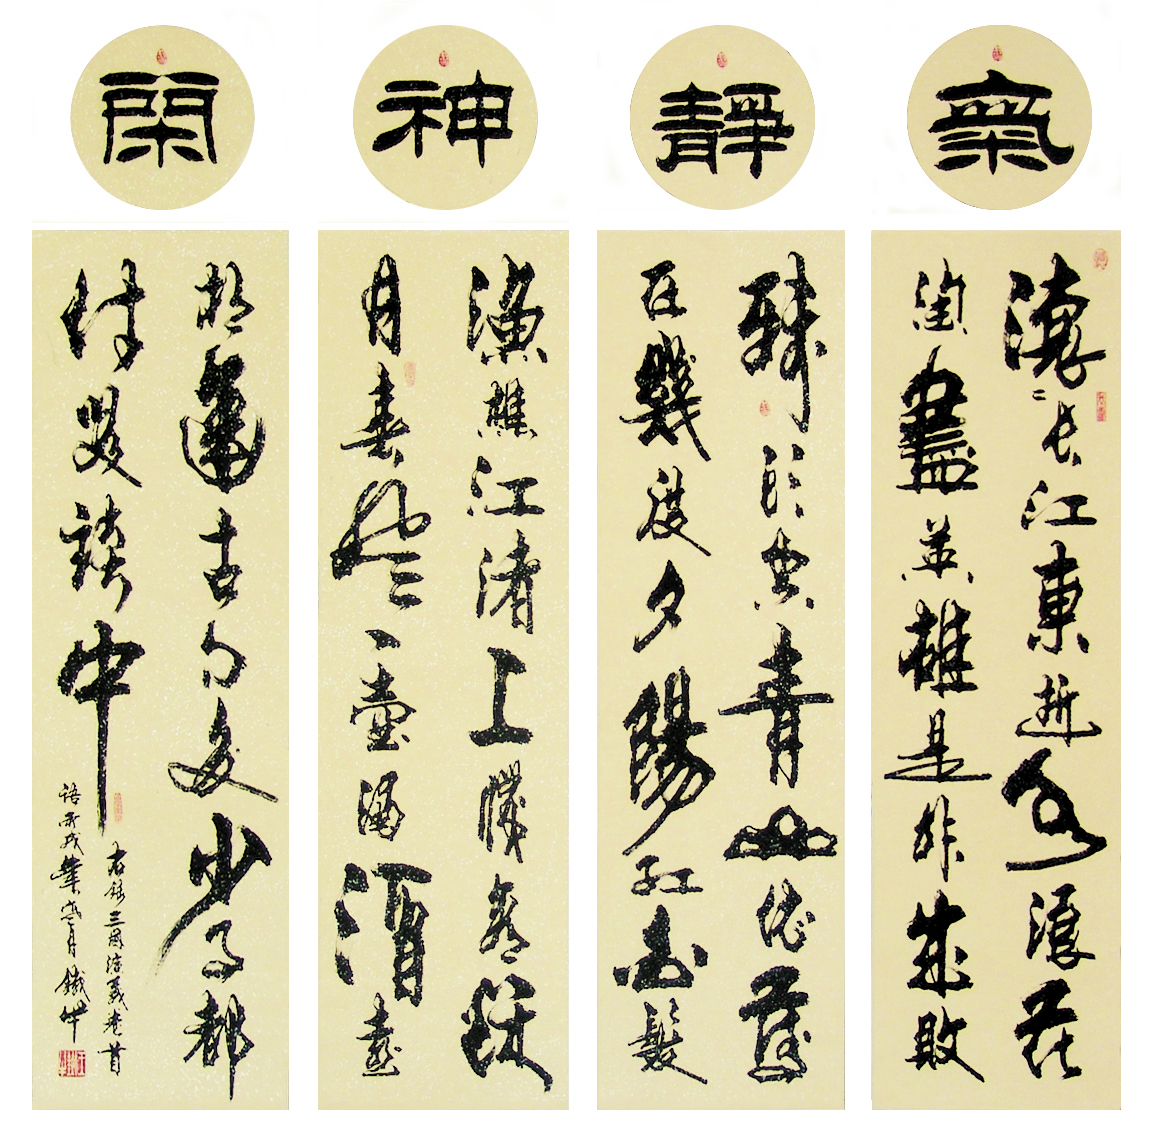 氣
靜
神
閑
滾〻長江東逝水浪花
淘盡英雄是非成敗
轉頭空青山依舊
在幾度夕陽紅白髮
漁樵江渚上慣看秋
月春風一壺濁酒喜
相逢古今多少事都
付笑談中
右錄三國演義卷首
語丙戌月鐵牛